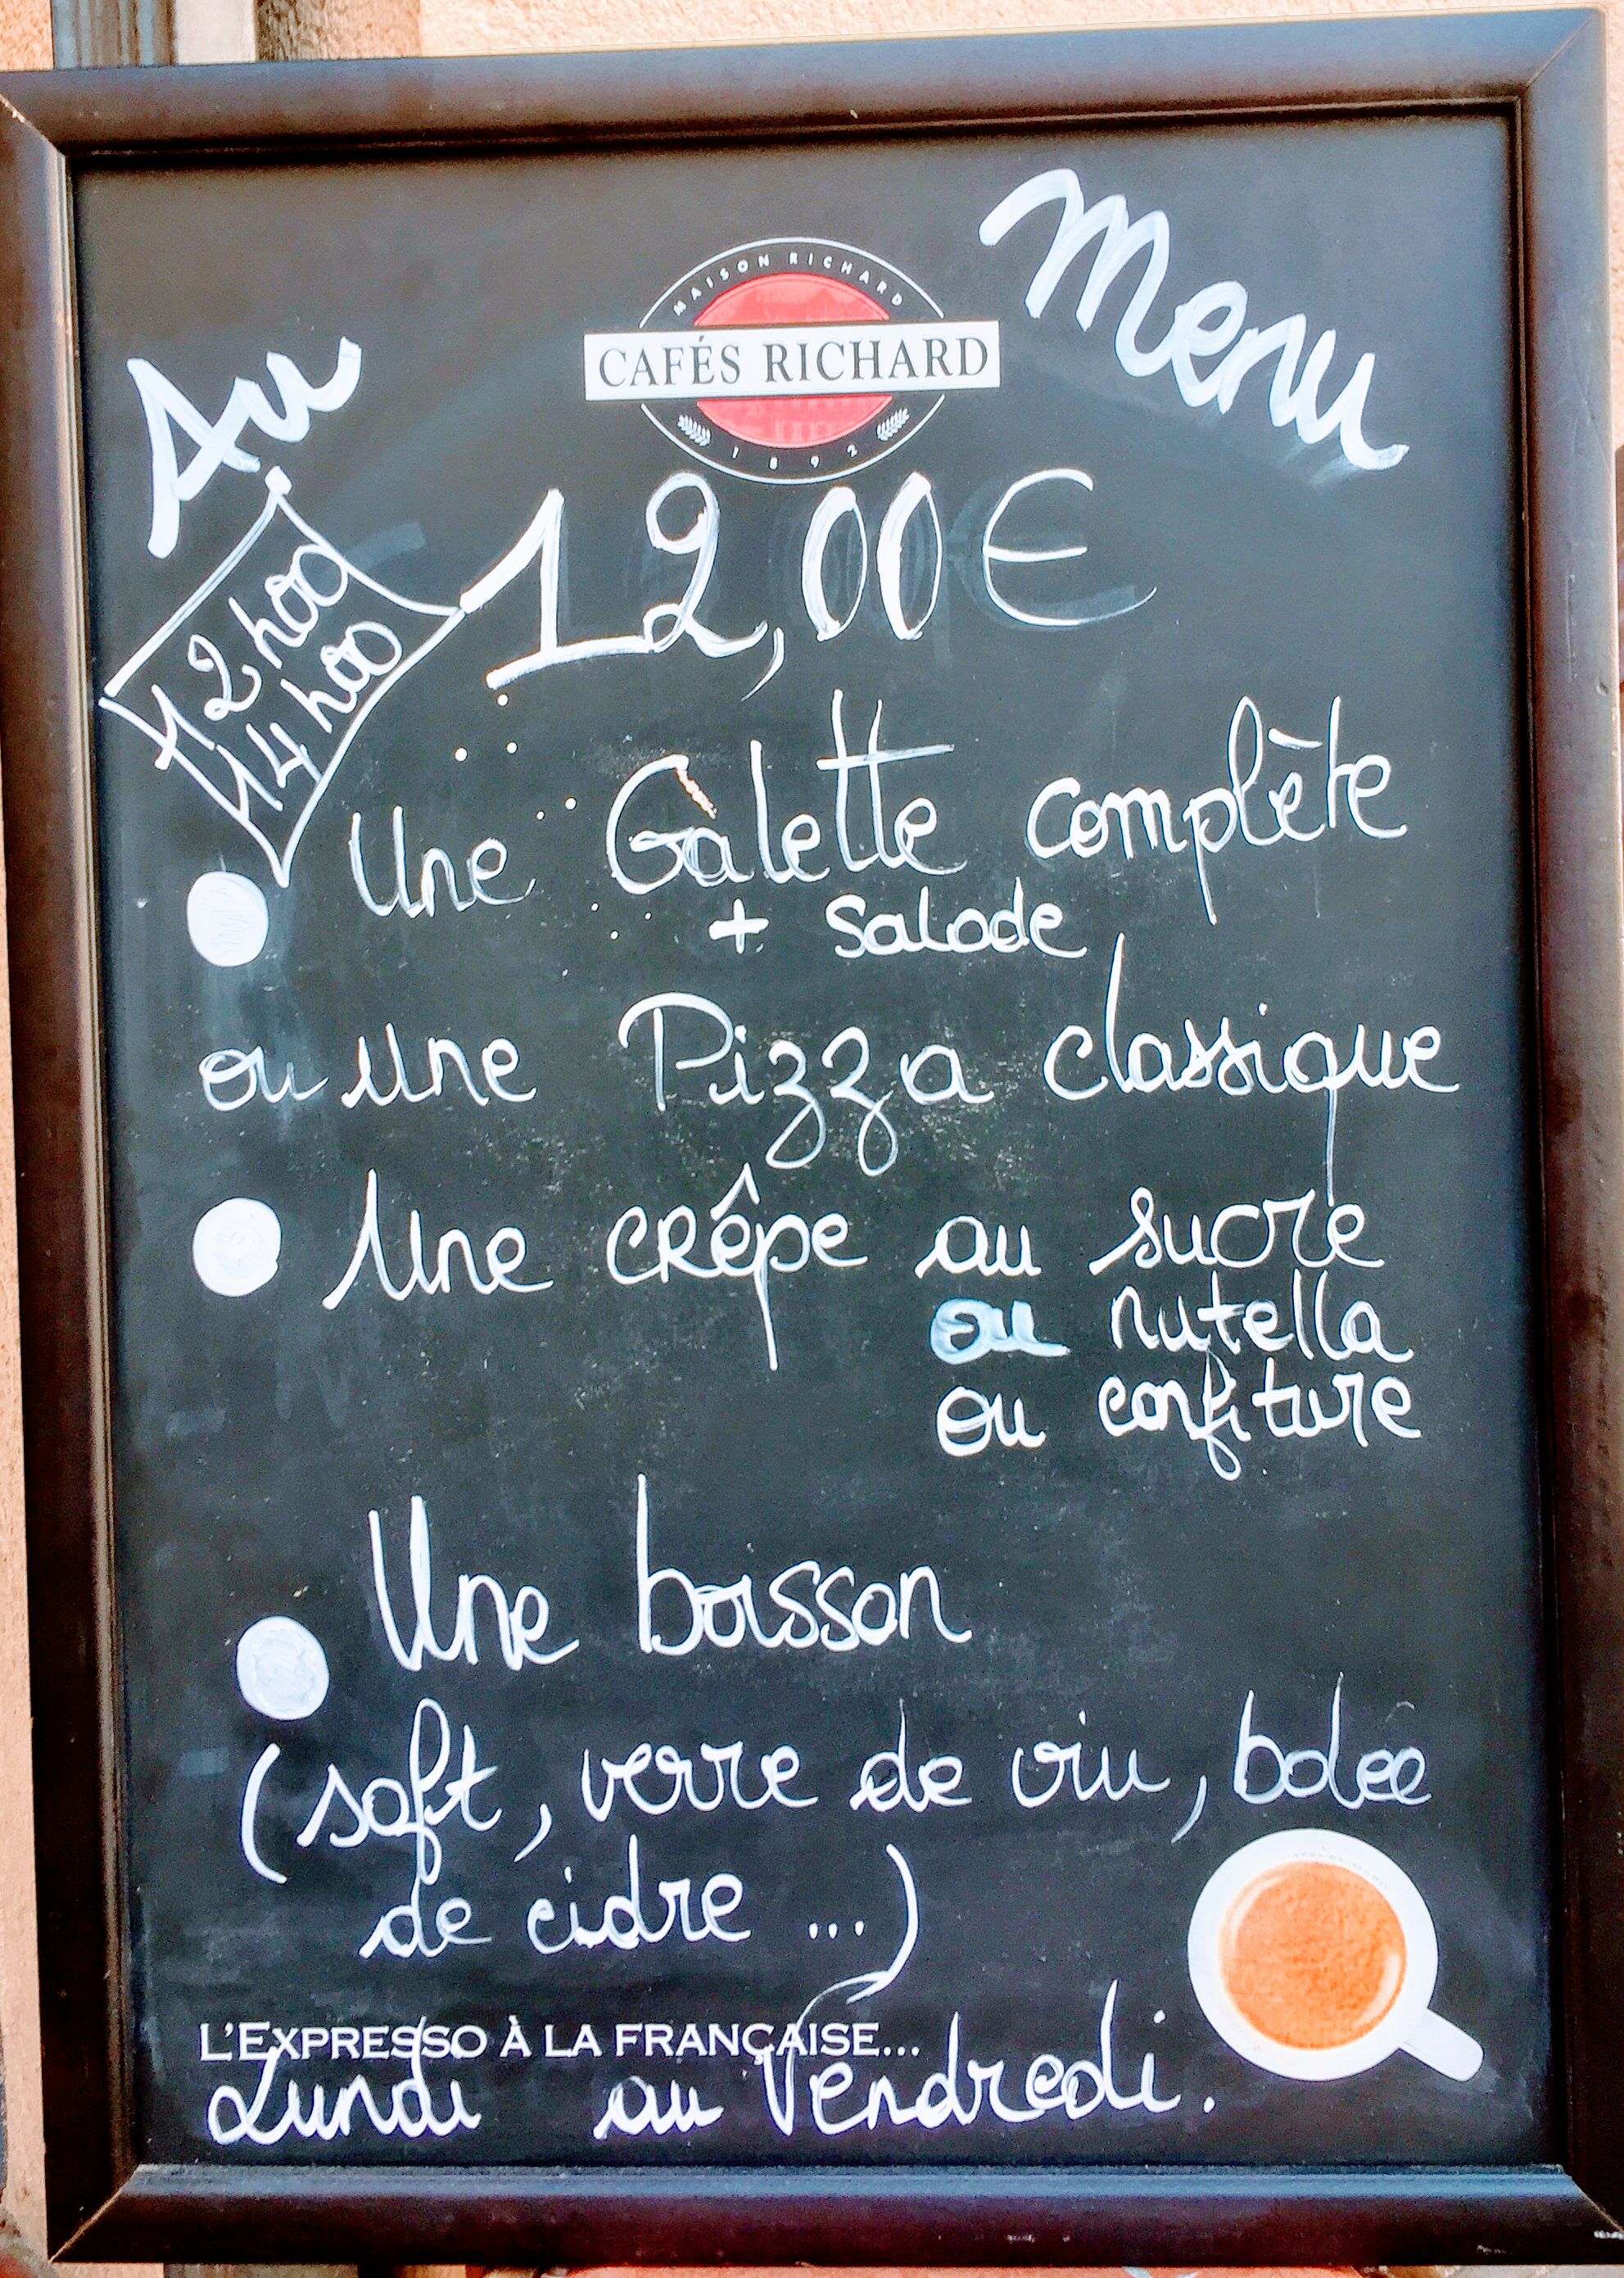 Au Menu
MAISON RICHARD
CAFÉS RICHARD
1892
12,00€
12h00
14h00
Une Galette complète
+ Salade
ou une Pizza classique
Une crêpe au sucre
ou nutella
ou confiture
Une boisson
(soft, verre de vin, bolée
de cidre ...)
L'EXPRESSO À LA FRANÇAISE...
Lundi au Vendredi.